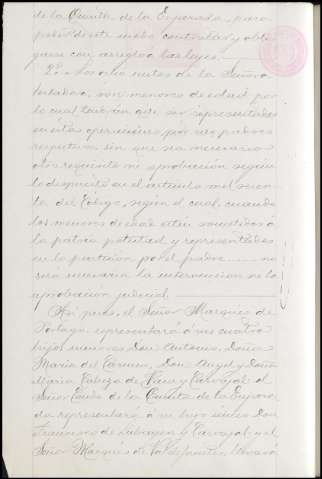 de la Quinta de la Enjarada, para
poder desde indo contratar y obli-
garse con arreglo a las leyes.
2º Los ocho nietos de la Señora
testadora, son menores de edad por
lo cual tendrán que ser representados
en estas operaciones por sus padres
respectivos sin que sea necesario
otro requisito ni aprobación según
lo dispuesto en el artículo mil sesen-
ta del Código, según el cual, cuando
los menores de edad estén sometidos á
la patria potestad y representados
en la partición por el padre ... no
será necesaria la intervención ni la
aprobación judicial.
Así pues, el Señor Marqués de
Portago, representará á sus cuatro
hijos menores Don Antonio, Doña
María del Carmen, Don Angel y Doña
María Cabeza de Vaca y Carvajal: el
Señor Conde de la Quinta de la Enjara-
da representará á su hijo menor Don
Francisco de y Carvajal: y el
Señor Marqués de Valdefuentes llevará